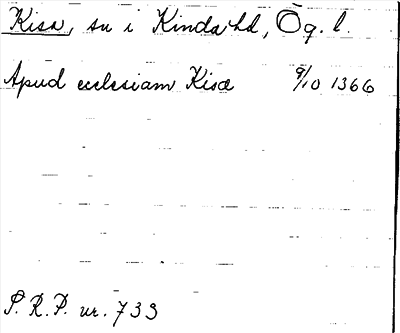 Kisa, sn i Kinda hd, Ög. l.
Apud ecclesiam Kisa 9/10 1366
S. R. P. nr. 733